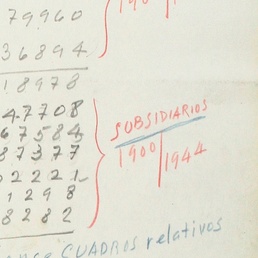 79960
36894
18978
47708
67584
87377
02221
1298
8282
SUBSIDIARIOS
1900 1944
CUADROS relativos